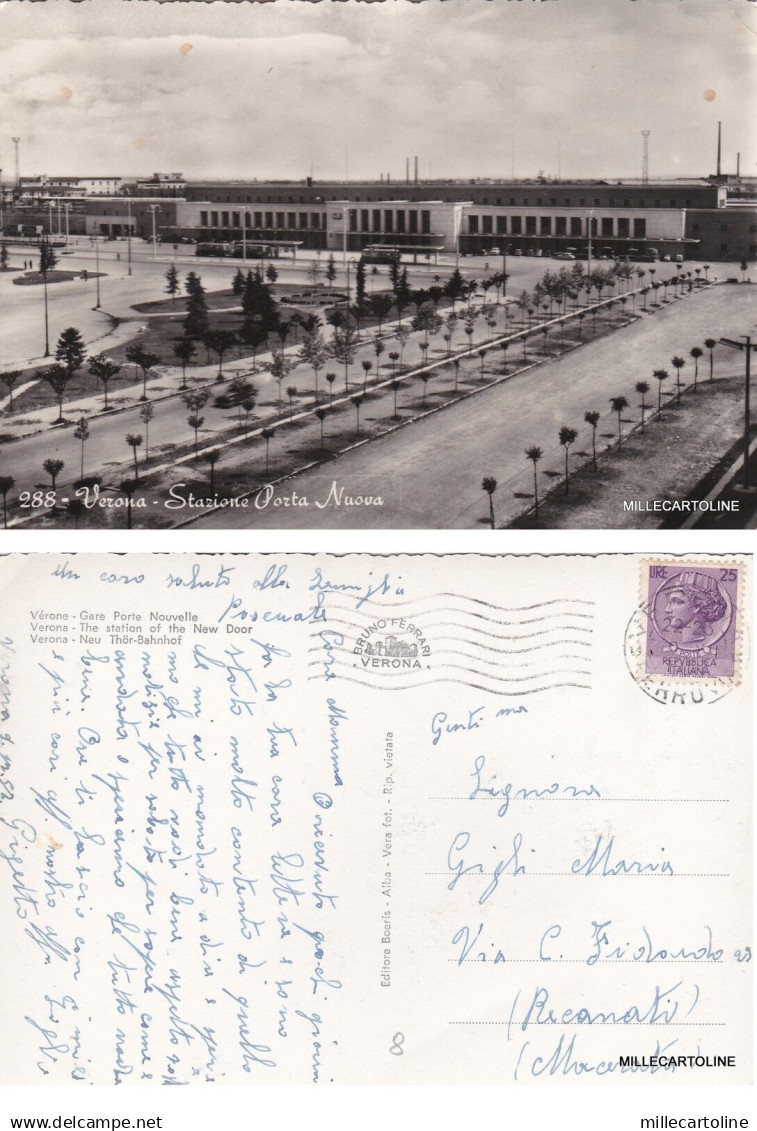 288 - Verona - Stazione Porta Nuova
MILLECARTOLINE
Un caro saluto alla famiglia
Posenato
Vérone - Gare Porte Nouvelle
Verona - The station of the New Door
Verona - Neu Thör-Bahnhof
BRUNO FERRARI
VERONA
LIRE 25
REPVBBLICA
ITALIANA
Cara Mamma O ricevuto pochi giorni
fa la tua cara lettera e sono
stato molto contento di quello
che mi ai mandato a dire e spero
che tutto vadi bene aspetto
notizie per sapere come e
andata e speriamo che tutto vada
bene. Ora ti lascio con i miei
e più cari
Verona
Gigetto
Editore Boeris - Alba - Vera fot. - Rip. vietata
Gentil ma
Signora
Gigli Maria
Via C. Fidardo
(Recanati)
(Macerata)
8
MILLECARTOLINE
millecartoline
millecartoline